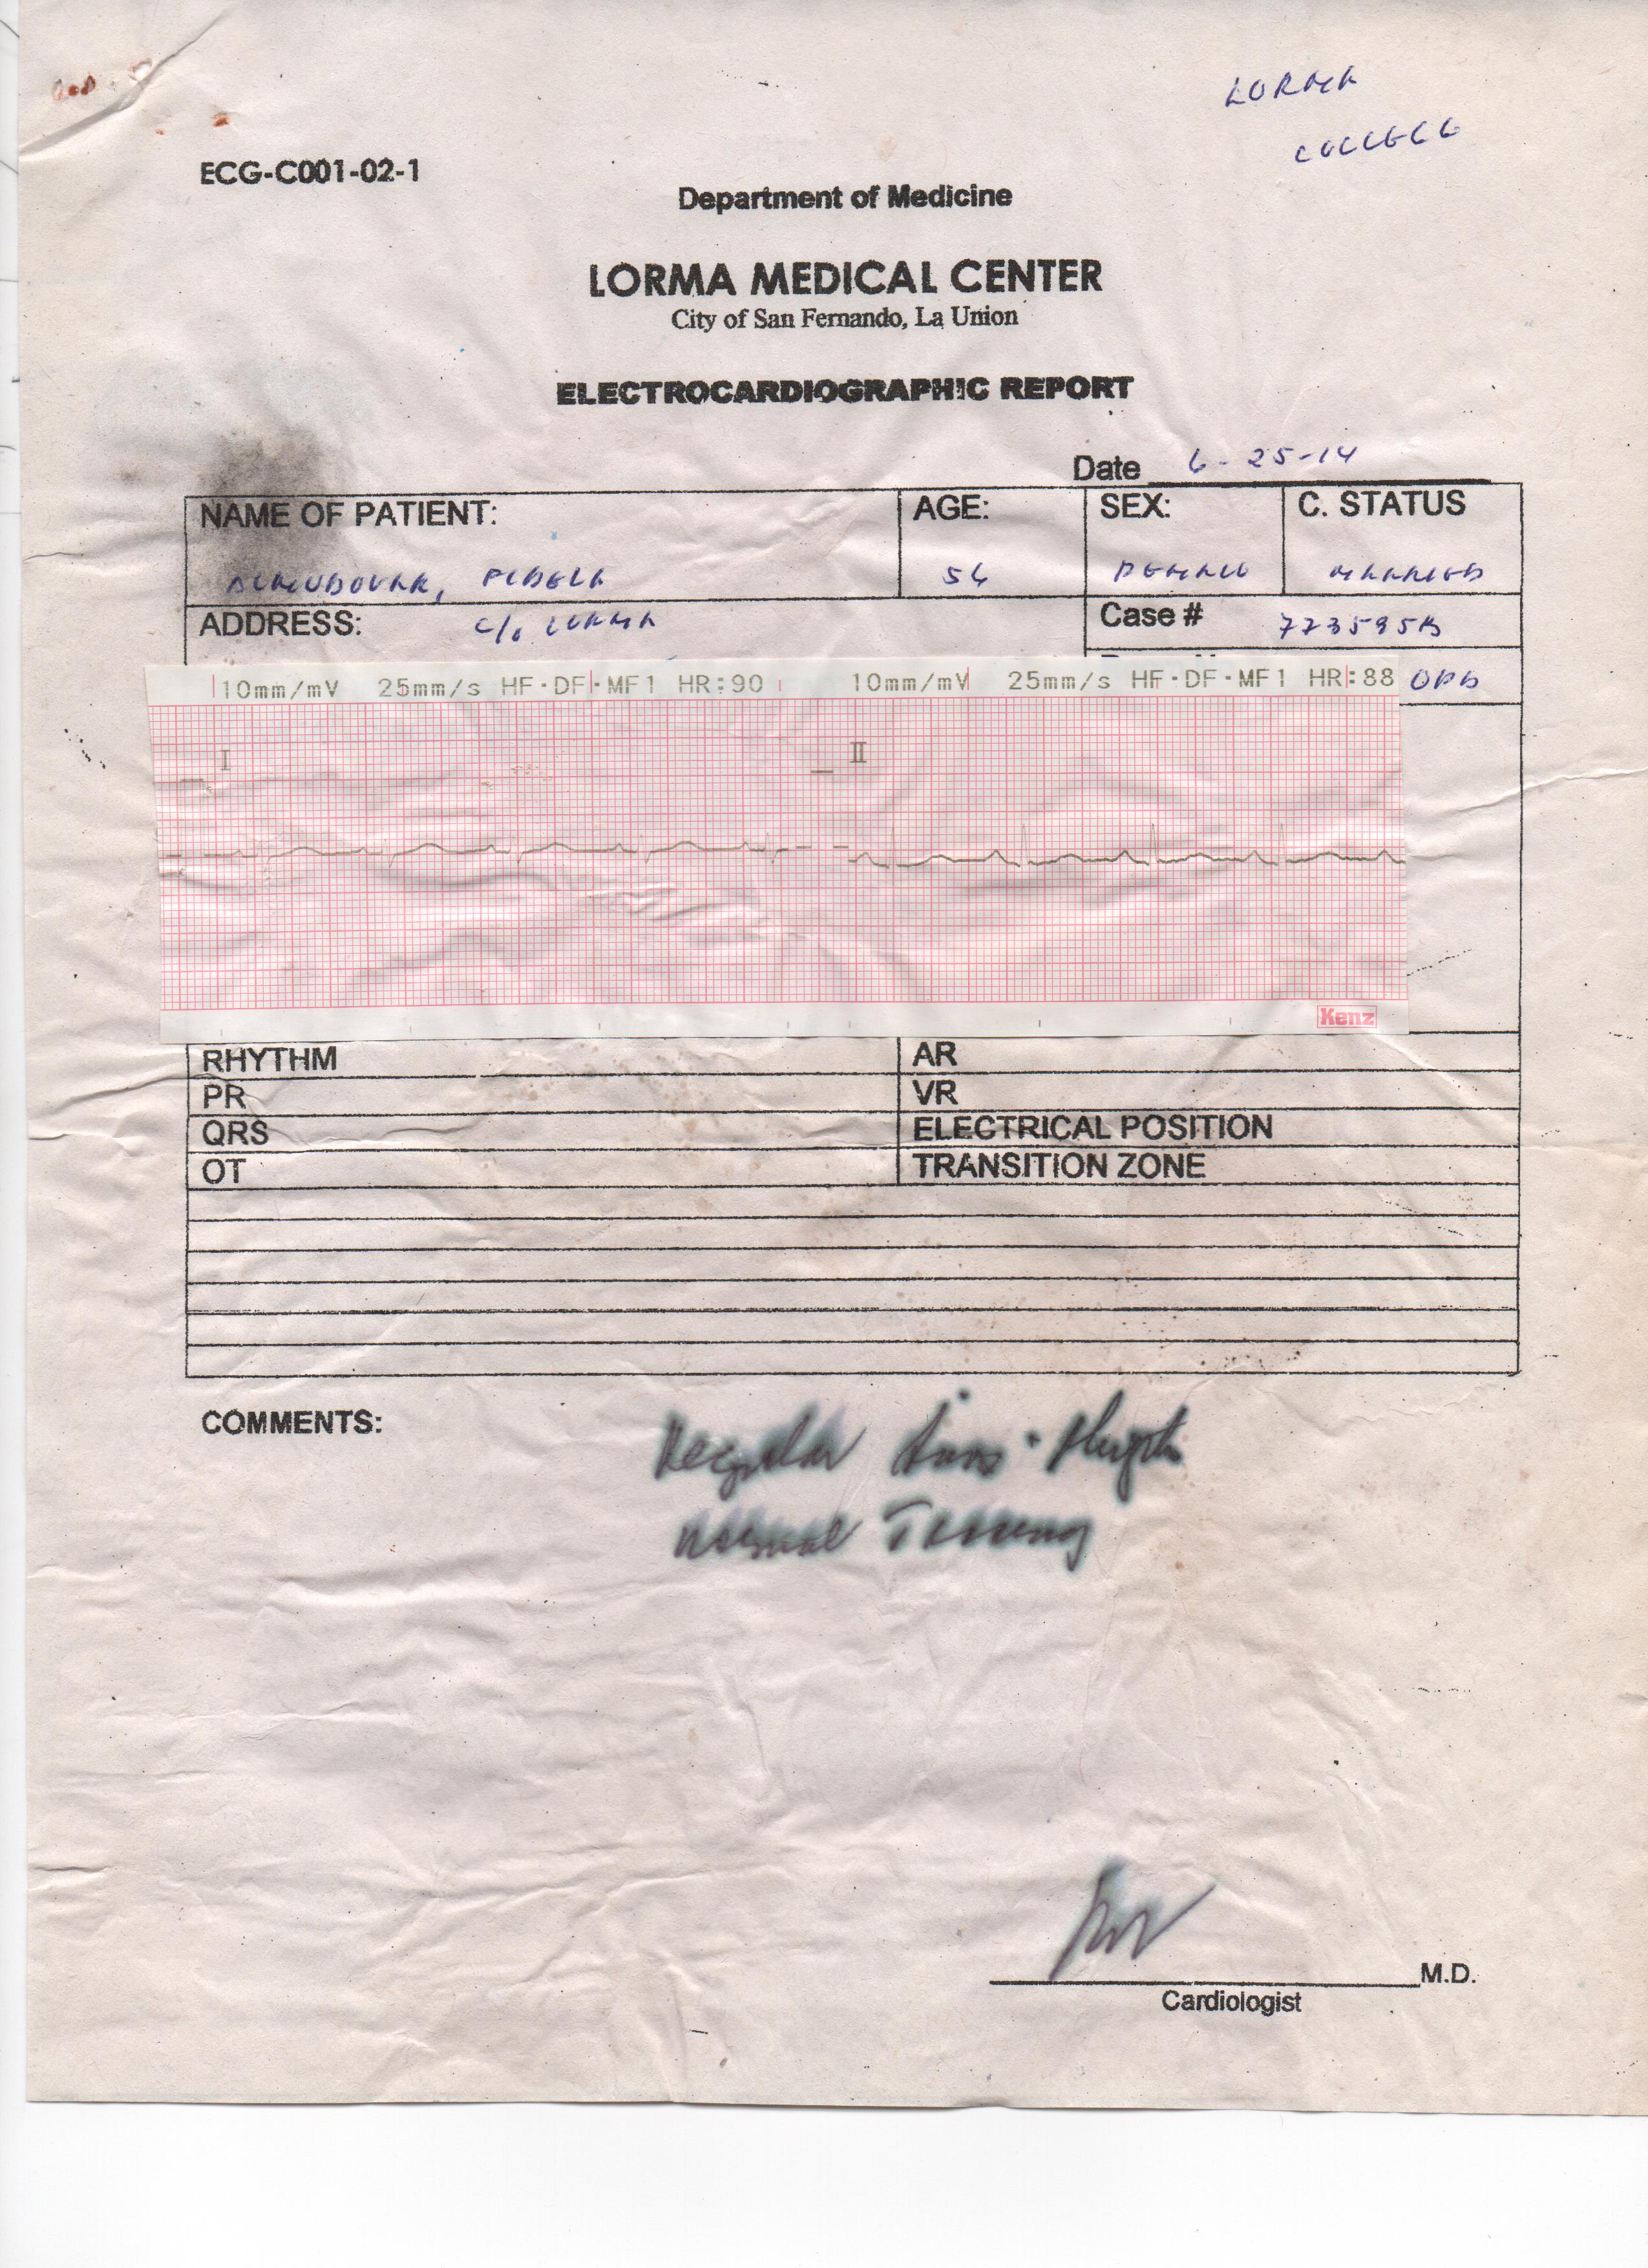 LORMA
COLLEGE
ECG-C001-02-1
Department of Medicine
LORMA MEDICAL CENTER
City of San Fernando, La Union
ELECTROCARDIOGRAPHIC REPORT
Date 6-25-14
NAME OF PATIENT: AGE: SEX: C. STATUS
54 FEMALE MARRIED
ADDRESS: c/o LORMA Case # 773595B
10mm/mV 25mm/s HF·DF·MF1 HR:90 10mm/mV 25mm/s HF·DF·MF1 HR:88 OPD
I II
Kenz
RHYTHM AR
PR VR
QRS ELECTRICAL POSITION
OT TRANSITION ZONE
COMMENTS: Regular Sinus Rhythm
Normal Tracing
M.D.
Cardiologist